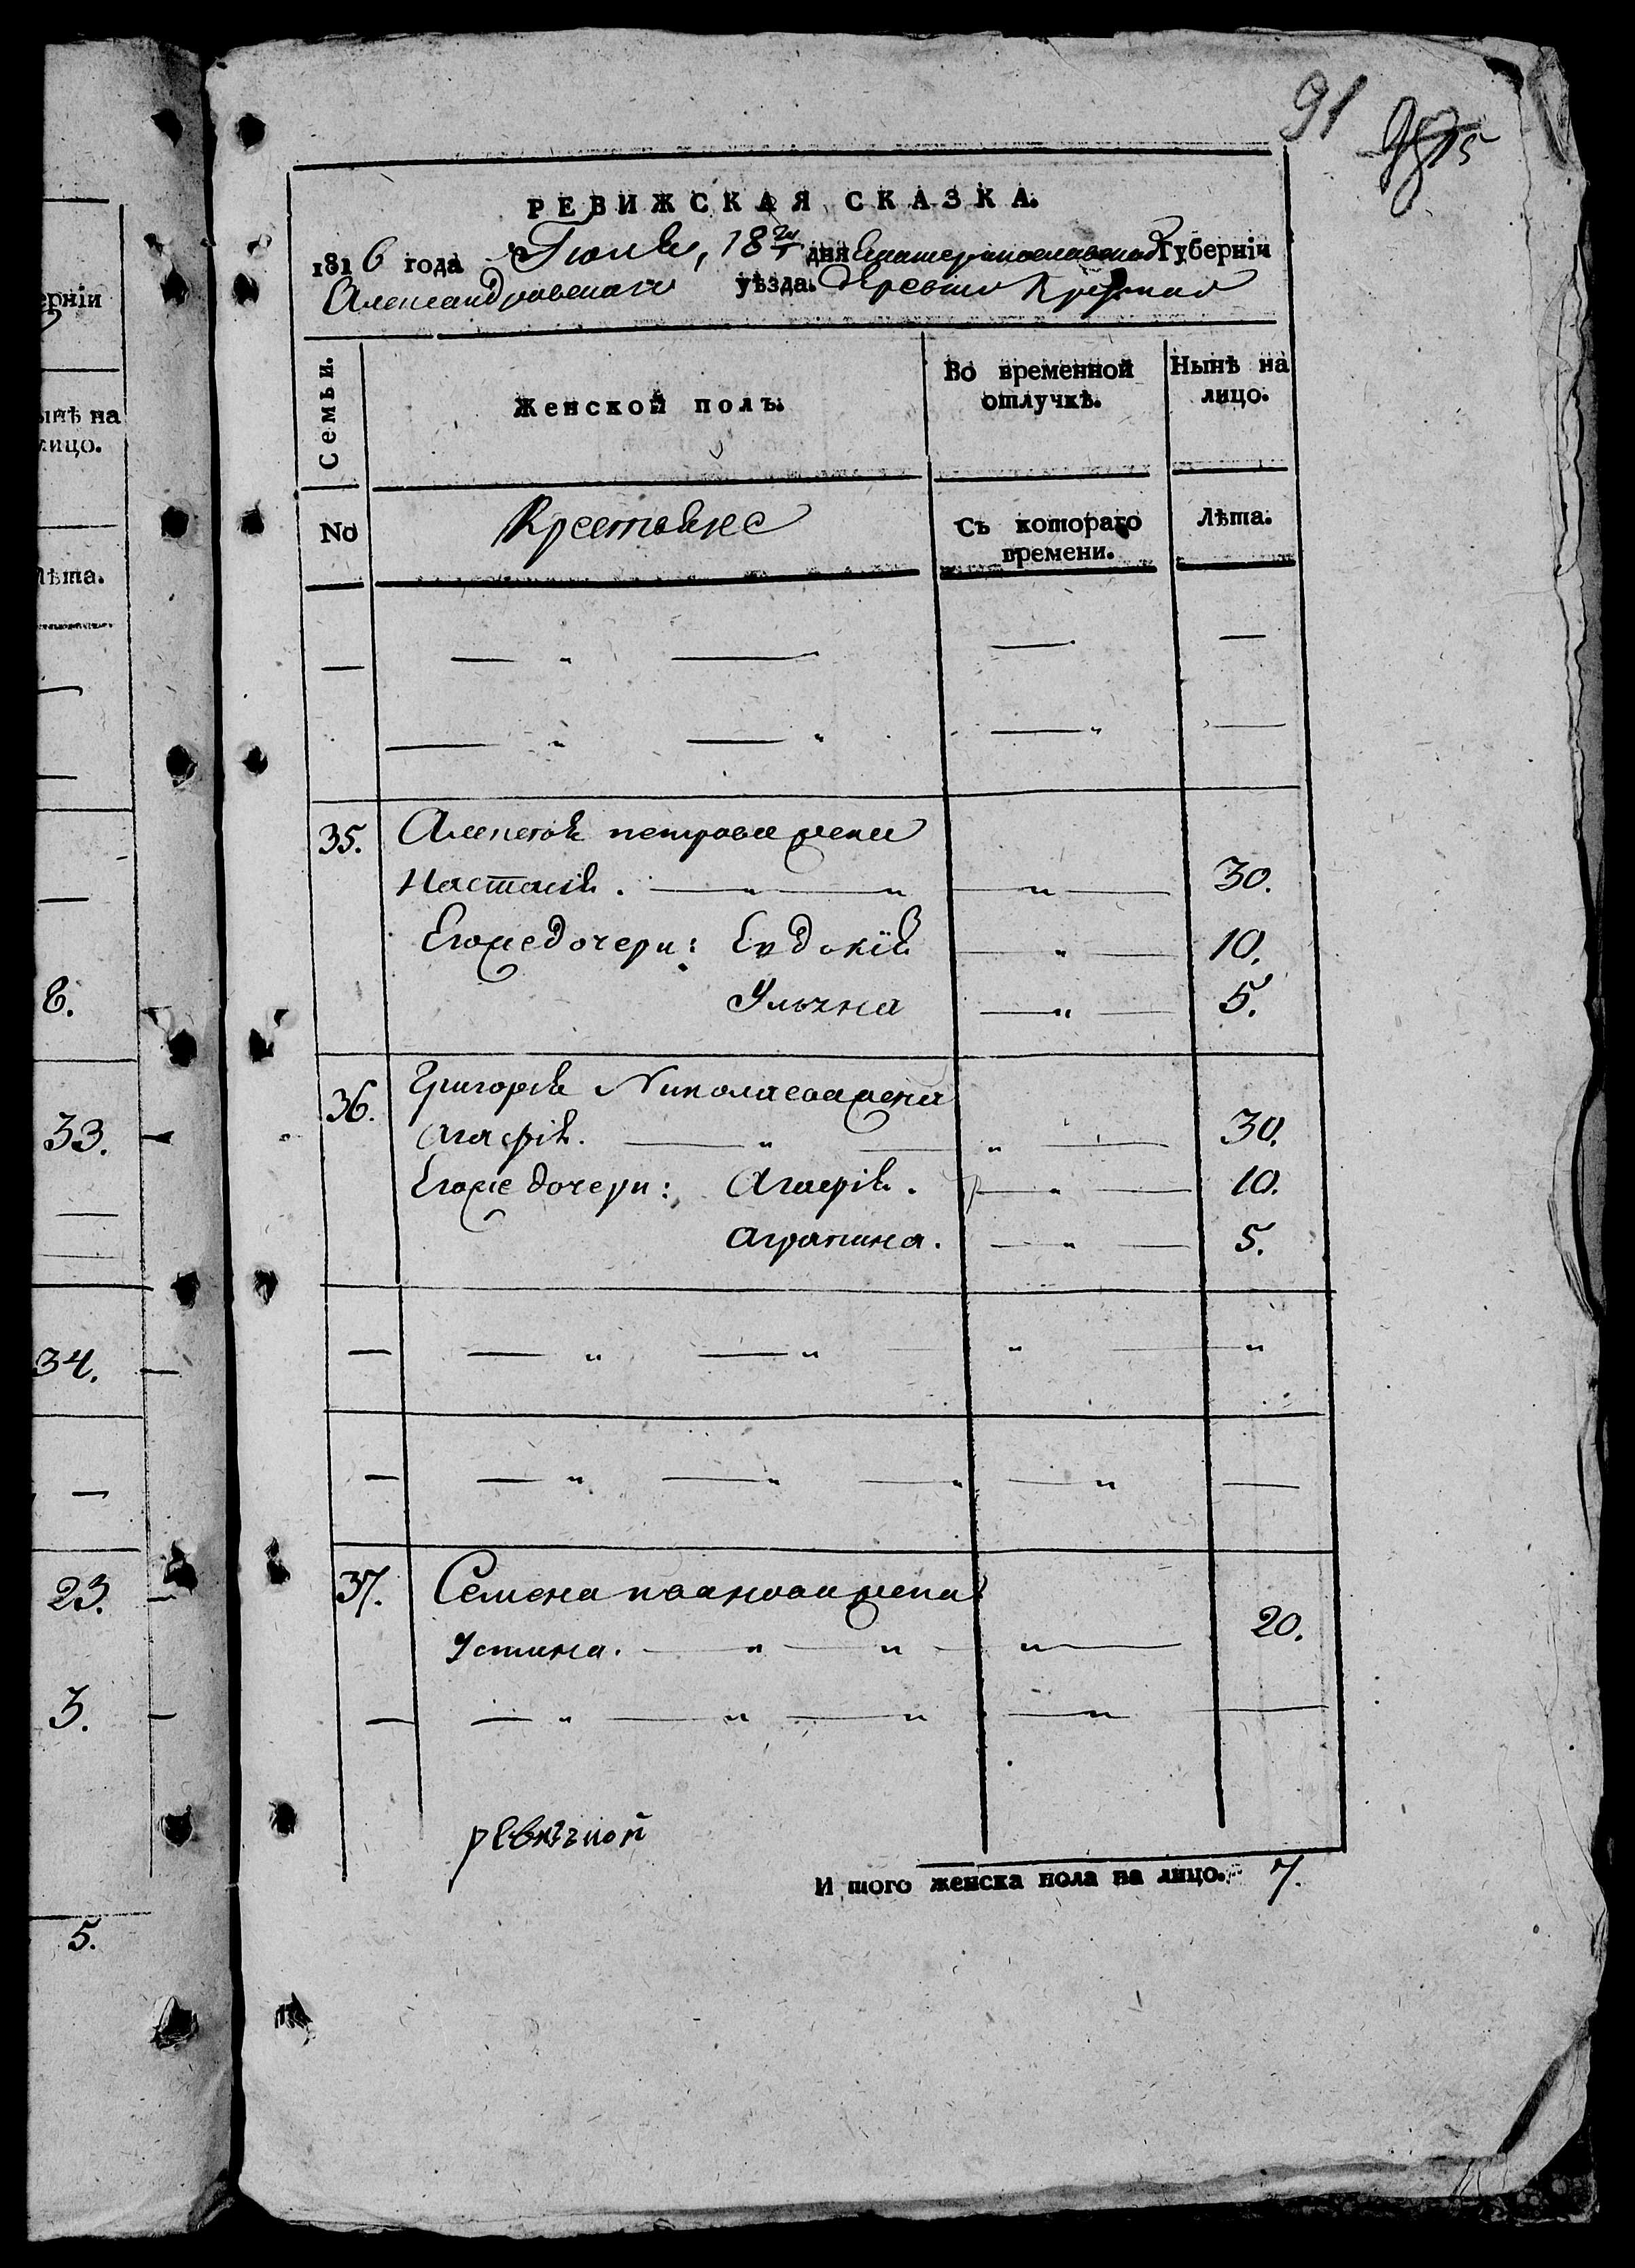 91
РЕВИЖСКАЯ СКАЗКА.
1816 года Іюня, 18го дня Екатеринославской Губерніи
Александровскаго уѣзда. деревни
Семьи.
Женской полъ.
Во временной отлучкѣ.
Нынѣ на лицо.
No
Крестьяне
Съ котораго времени.
Лѣта.
35. Алексѣя петрова жена
Настасія. 30.
Егоже дочери: Евдокія 10.
Ульяна 5.
36. Григорія Николаева жена
Агафія. 30.
Егоже дочери: Агафія. 10.
Аграпина. 5.
37. Семена иванова жена
Устина. 20.
И того женска пола на лицо. 7.
ерніи
ынѣ на
лицо.
Лѣта.
33.
34.
23.
3.
5.